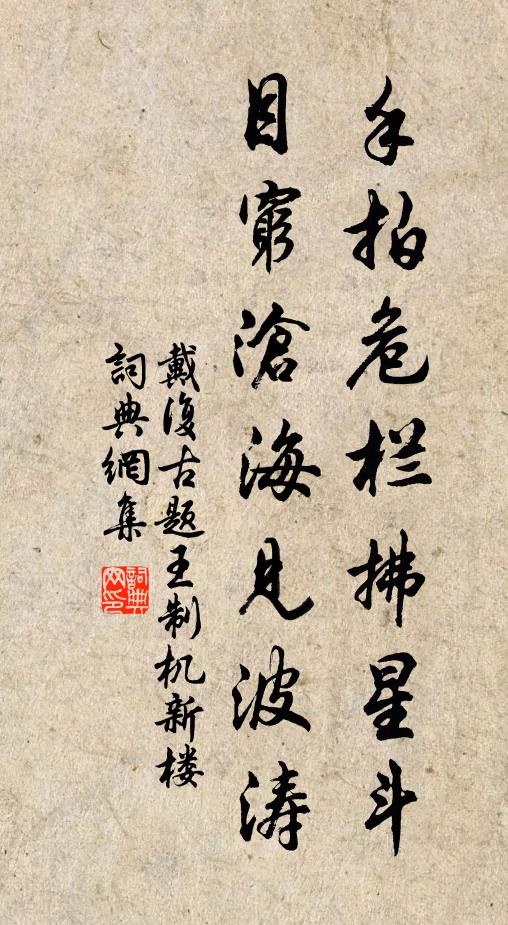 手拍危栏拂星斗
目窮滄海見波涛
戴復古题王制机新楼
詞典網集
詞典网印